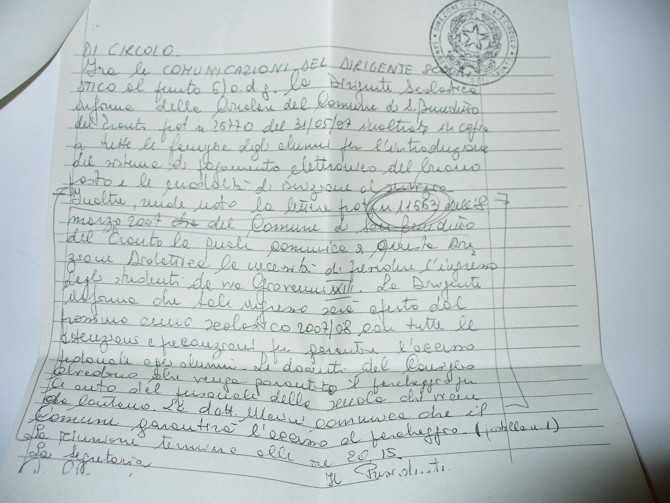 DI CIRCOLO
Tra le COMUNICAZIONI DEL DIRIGENTE SCOLA
STICO al punto 6) o.d.g. la Dirigente Scolastica
informa della Circolare del Comune di S. Benedetto
del Tronto prot n 25770 del 31/05/07 inoltrata in copia
a tutte le famiglie degli alunni per l'introduzione
del sistema di pagamento elettronico del buono
pasto e le modalità di
Inoltre, rende noto la lettera prot n 11563 dell'8
marzo 2007 del Comune di San Benedetto
del Tronto la quale comunica a questa Dire
zione Didattica la necessità di rendere l'ingresso
degli studenti da via Giovanni XXIII. La Dirigente
informa che tale ingresso sarà aperto dal
prossimo anno scolastico 2007/08 con tutte le
attenzioni e precauzioni per garantire l'accesso
pedonale agli alunni. I docenti del Consiglio
chiedono che venga garantito il parcheggio
le auto del personale della scuola che viene
da lontano. La dott. comunica che il
Comune garantirà l'accesso al parcheggio
La riunione termina alle ore 20.15
La Segretaria
Il Presidente